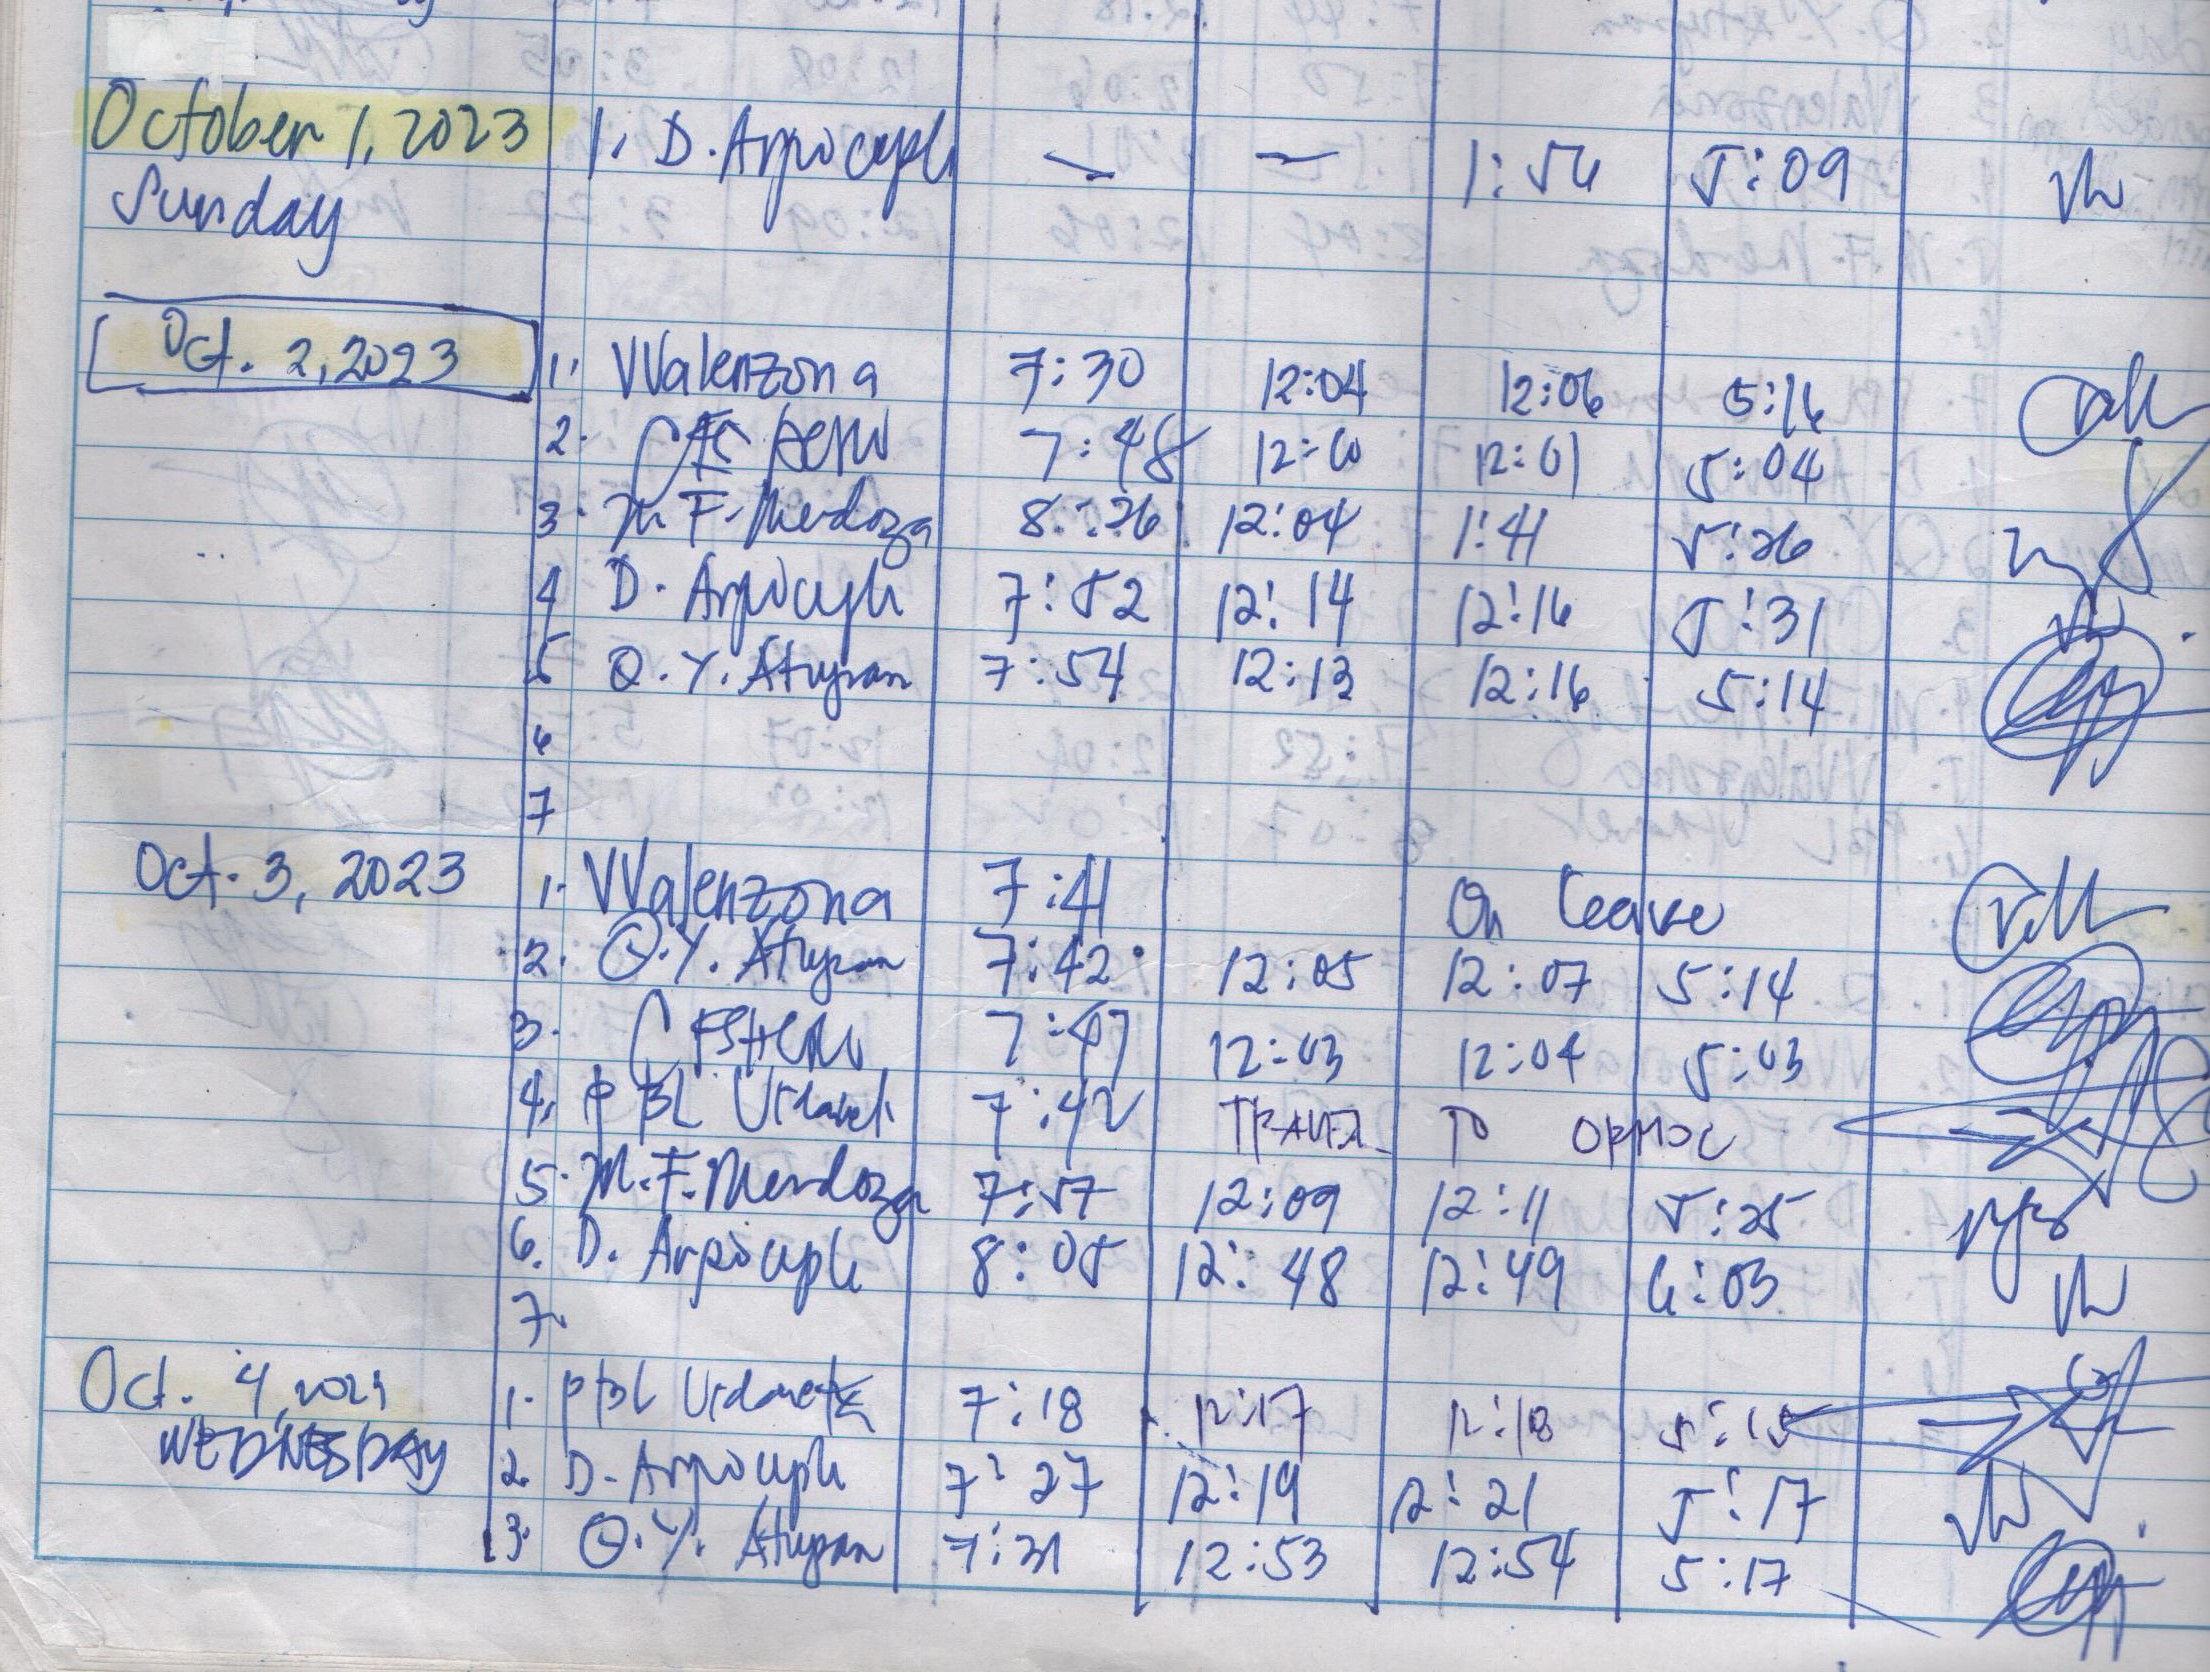 October 1, 2023 1. D. Arpocepli — — 1:54 5:09
Sunday
Oct. 2, 2023 1. VValenzona 7:30 12:04 12:06 5:16
2. 7:48 12:00 12:01 5:04
3. M. F. Mendoza 8:26 12:04 1:41 5:26
4 D. 7:52 12:14 12:16 5:31
5 Q. Y. Atupan 7:54 12:13 12:16 5:14
6
7
Oct. 3, 2023 1. VValenzona 7:41 On leave
2. Q. Y. Atupan 7:42 12:05 12:07 5:14
3. 7:47 12:03 12:04 5:03
4. PBL 7:42 TRAVEL TO ORMOC
5. M. F. Mendoza 7:57 12:09 12:11 5:25
6. D. 8:05 12:48 12:49 6:03
7.
Oct. 4, 2023 1. PBL 7:18 12:17 12:18 5:15
WEDNESDAY 2. D. 7:27 12:19 12:21 5:17
3. Q. Y. Atupan 7:31 12:53 12:54 5:17